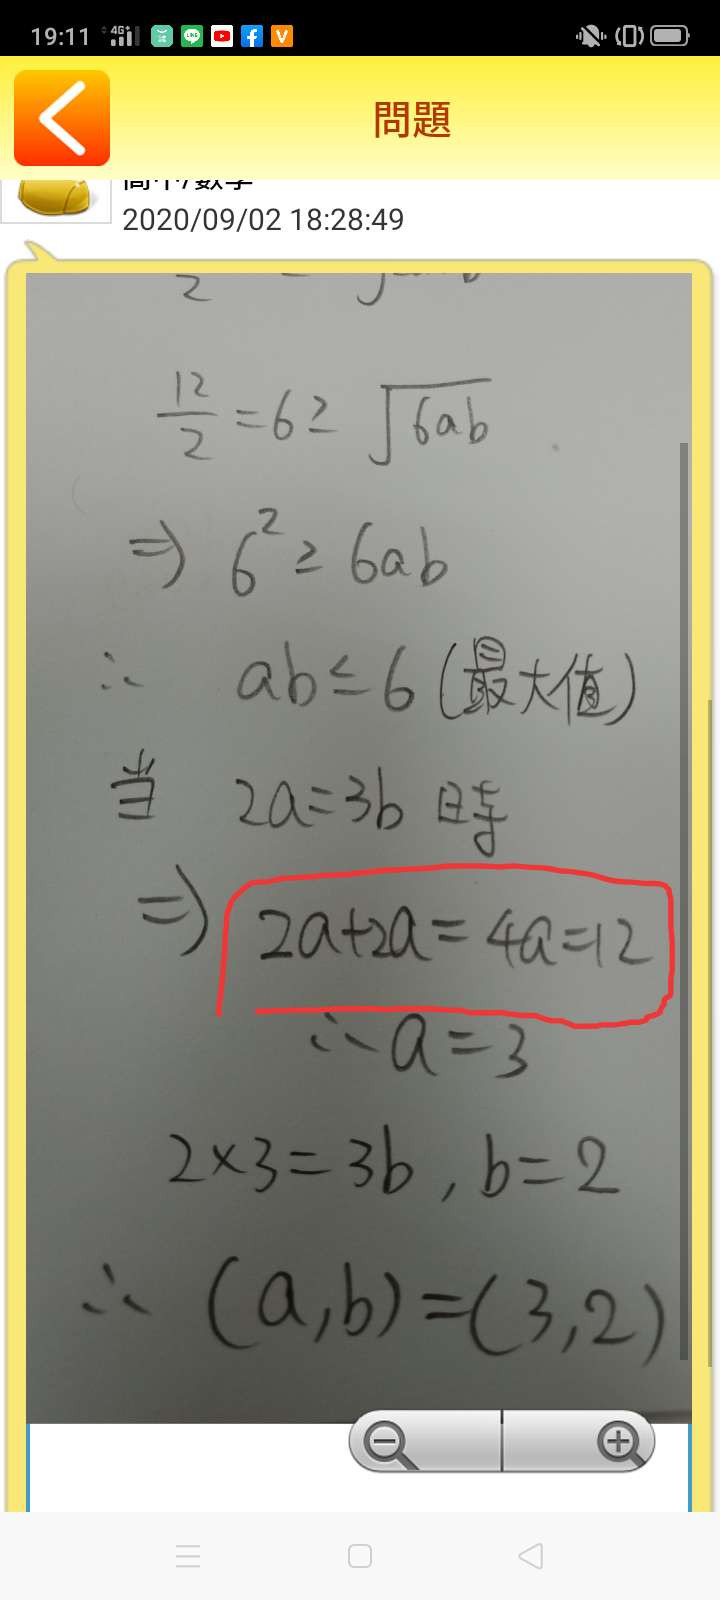 19:11 4G+
問題
高中/數學
2020/09/02 18:28:49
12/2 = 6 ≥ √6ab
⇒ 6² ≥ 6ab
∴ ab ≤ 6 (最大值)
当 2a=3b 時
⇒ 2a+2a = 4a = 12
∴ a = 3
2×3 = 3b , b = 2
∴ (a,b) = (3,2)